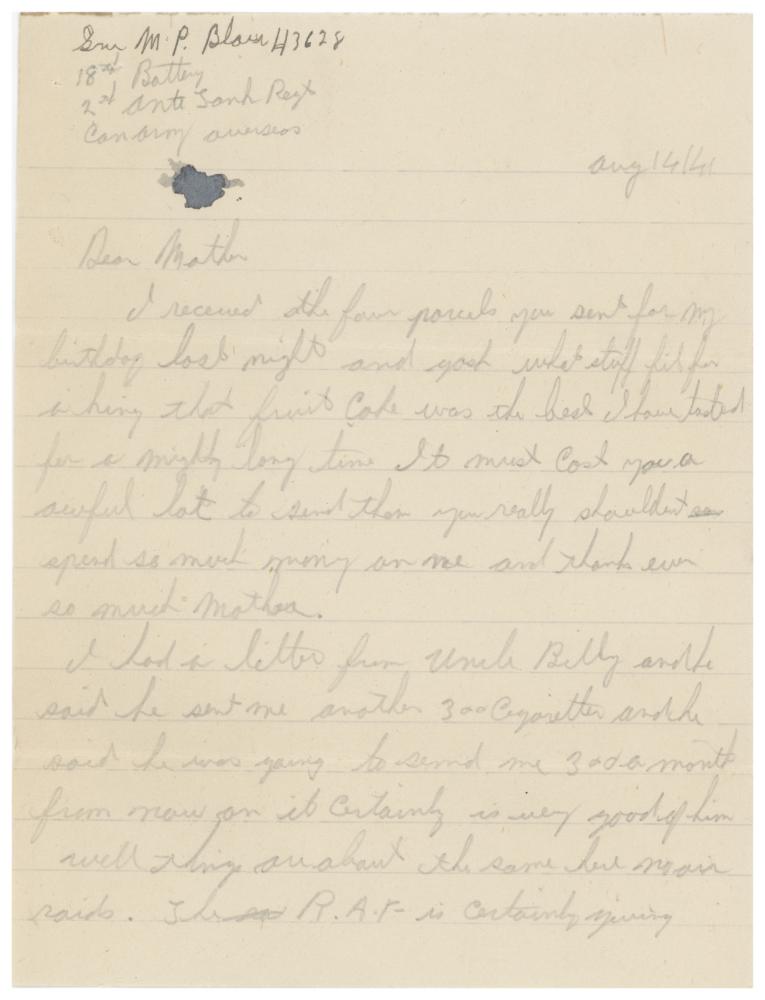 Gnr M.P. Blair 43628
18th Battery
2nd Anti Tank Regt
Can Army overseas
Aug 14/41
Dear Mother
I received the four parcels you sent for my
birthday last night and gosh what stuff fit for
a king that fruit Cake was the best I have tasted
for a mighty long time It must Cost you a
awful lot to send them you really shouldent
spend so much money on me and thank ever
so much Mother.
I had a letter from Uncle Billy and he
said he sent me another 300 Cigarettes and he
said he was going to send me 300 a month
from now on it Certainly is very good of him
well things are about the same here no air
raids. The R.A.F is Certainly giving